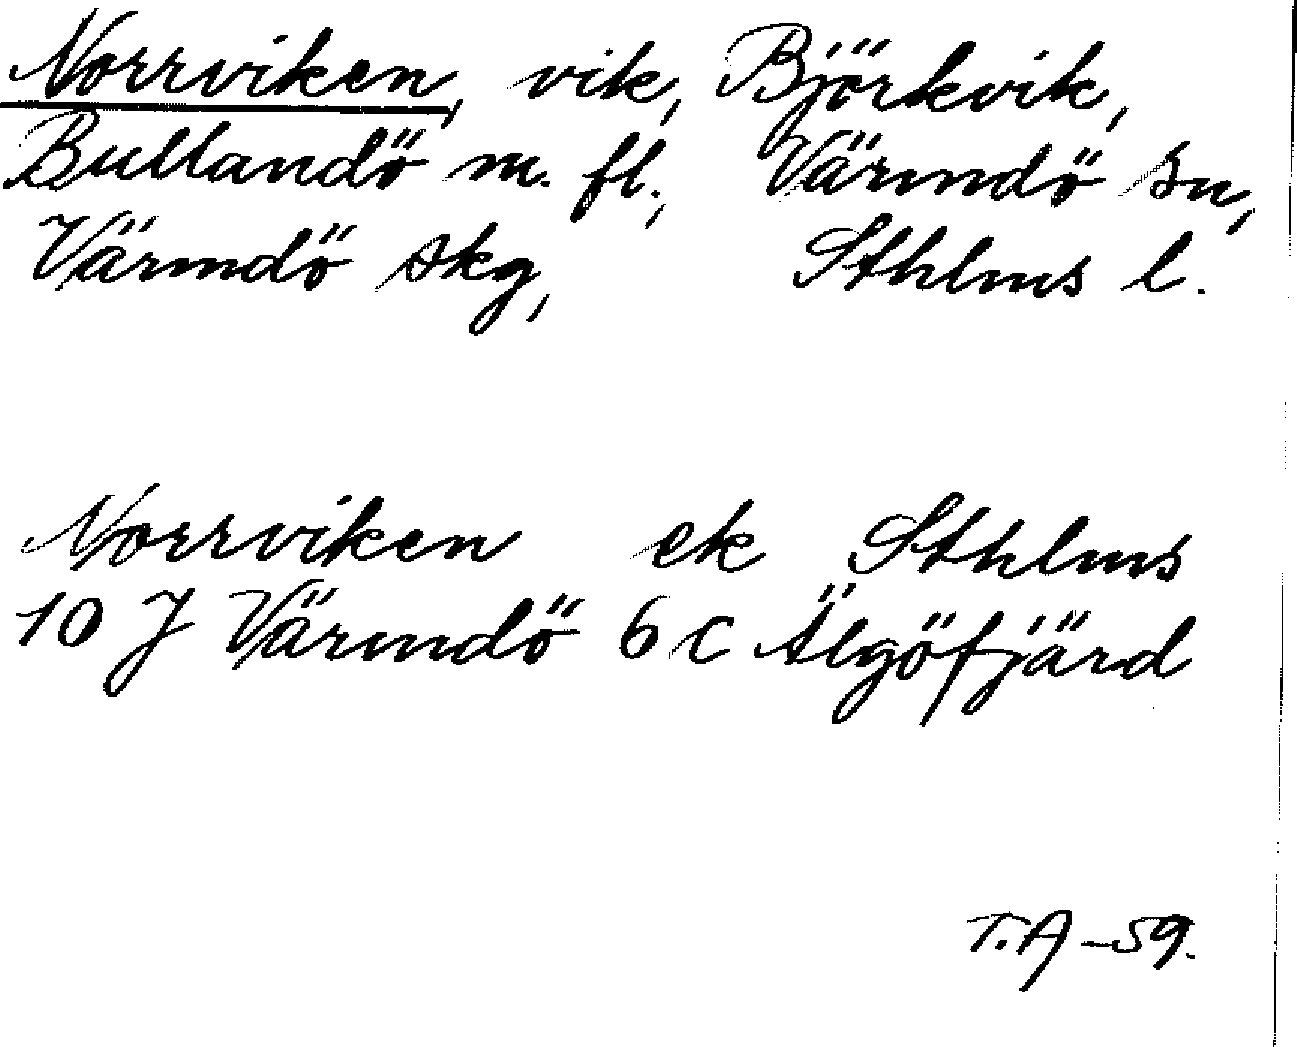 Norrviken, vik, Björkvik,
Bullandö m. fl., Värmdö sn,
Värmdö skg, Sthlms l.
Norrviken ek Sthlms
10 J Värmdö 6 c Älgöfjärd
T.A -59.